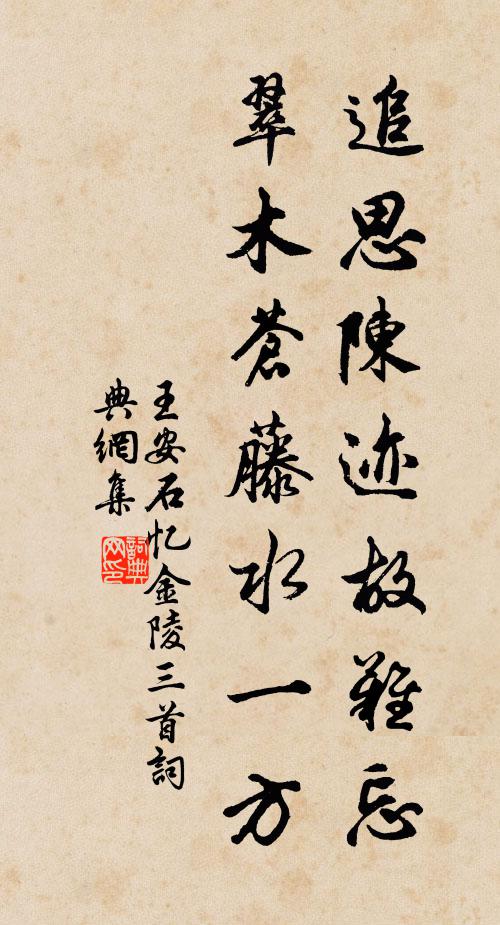 追思陳迹故難忘
翠木蒼藤水一方
王安石忆金陵三首詞
典網集
詞典
网印